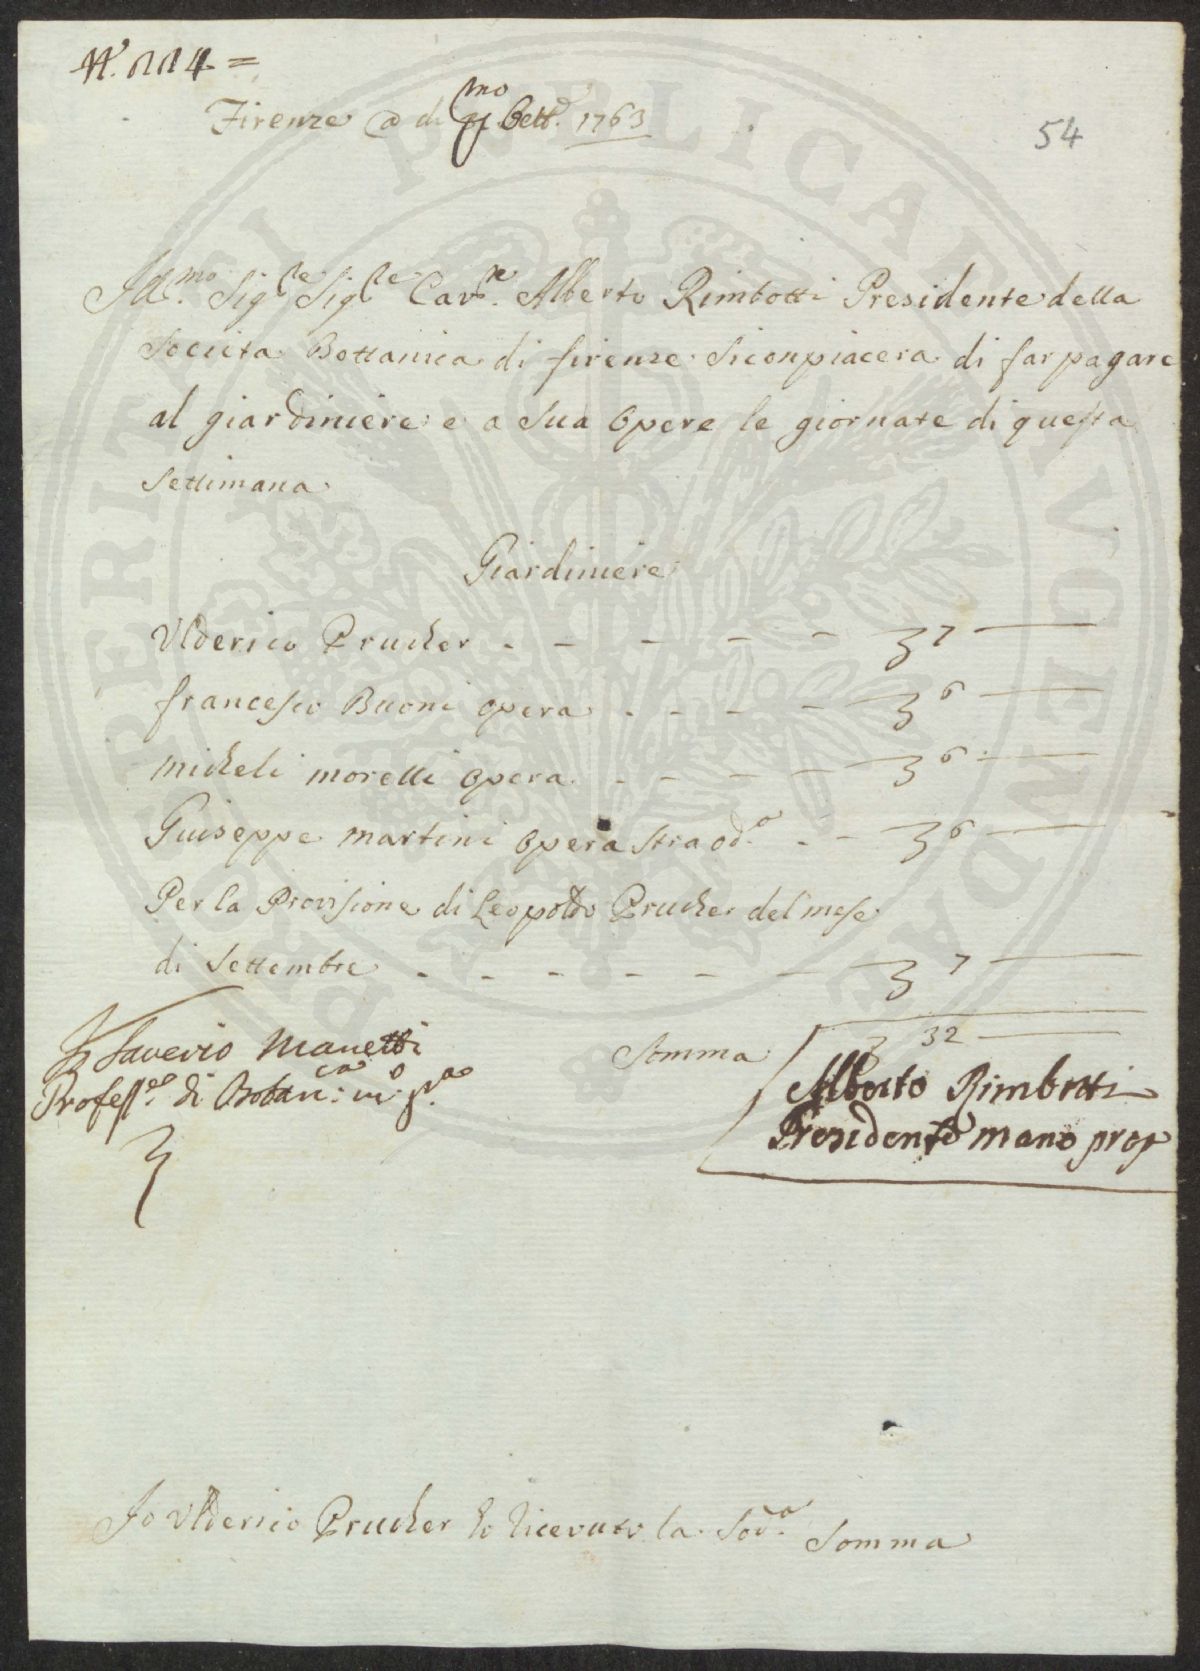 N. 114 =
Firenze a di p.mo 8ett. 1763
54
Ill.mo Sig.re Sig.re Cav.re Alberto Rimbotti Presidente della
Societa Bottanica di firenze si conpiacera di far pagare
al giardiniere e a sua opere le giornate di questa
Settimana
Giardiniere
Ulderico Prucker - - - - - 7 —
francesco Buoni opera - - - - 6 —
micheli morelli opera - - - - 6 —
Guiseppe martini opera straod.a - - 6 —
Per la Provisione di Leopoldo Prucker del mese
di Settembre - - - - - - 7 —
Somma 32 —
Saverio Manetti
Profess.e di Botan.ca m.o p.a
Alberto Rimbotti
Presidente mano prop
Io Ulderico Prucker ho ricevuto la Sod.a Somma
PROSPERITATI PUBLICAE AVGENDAE